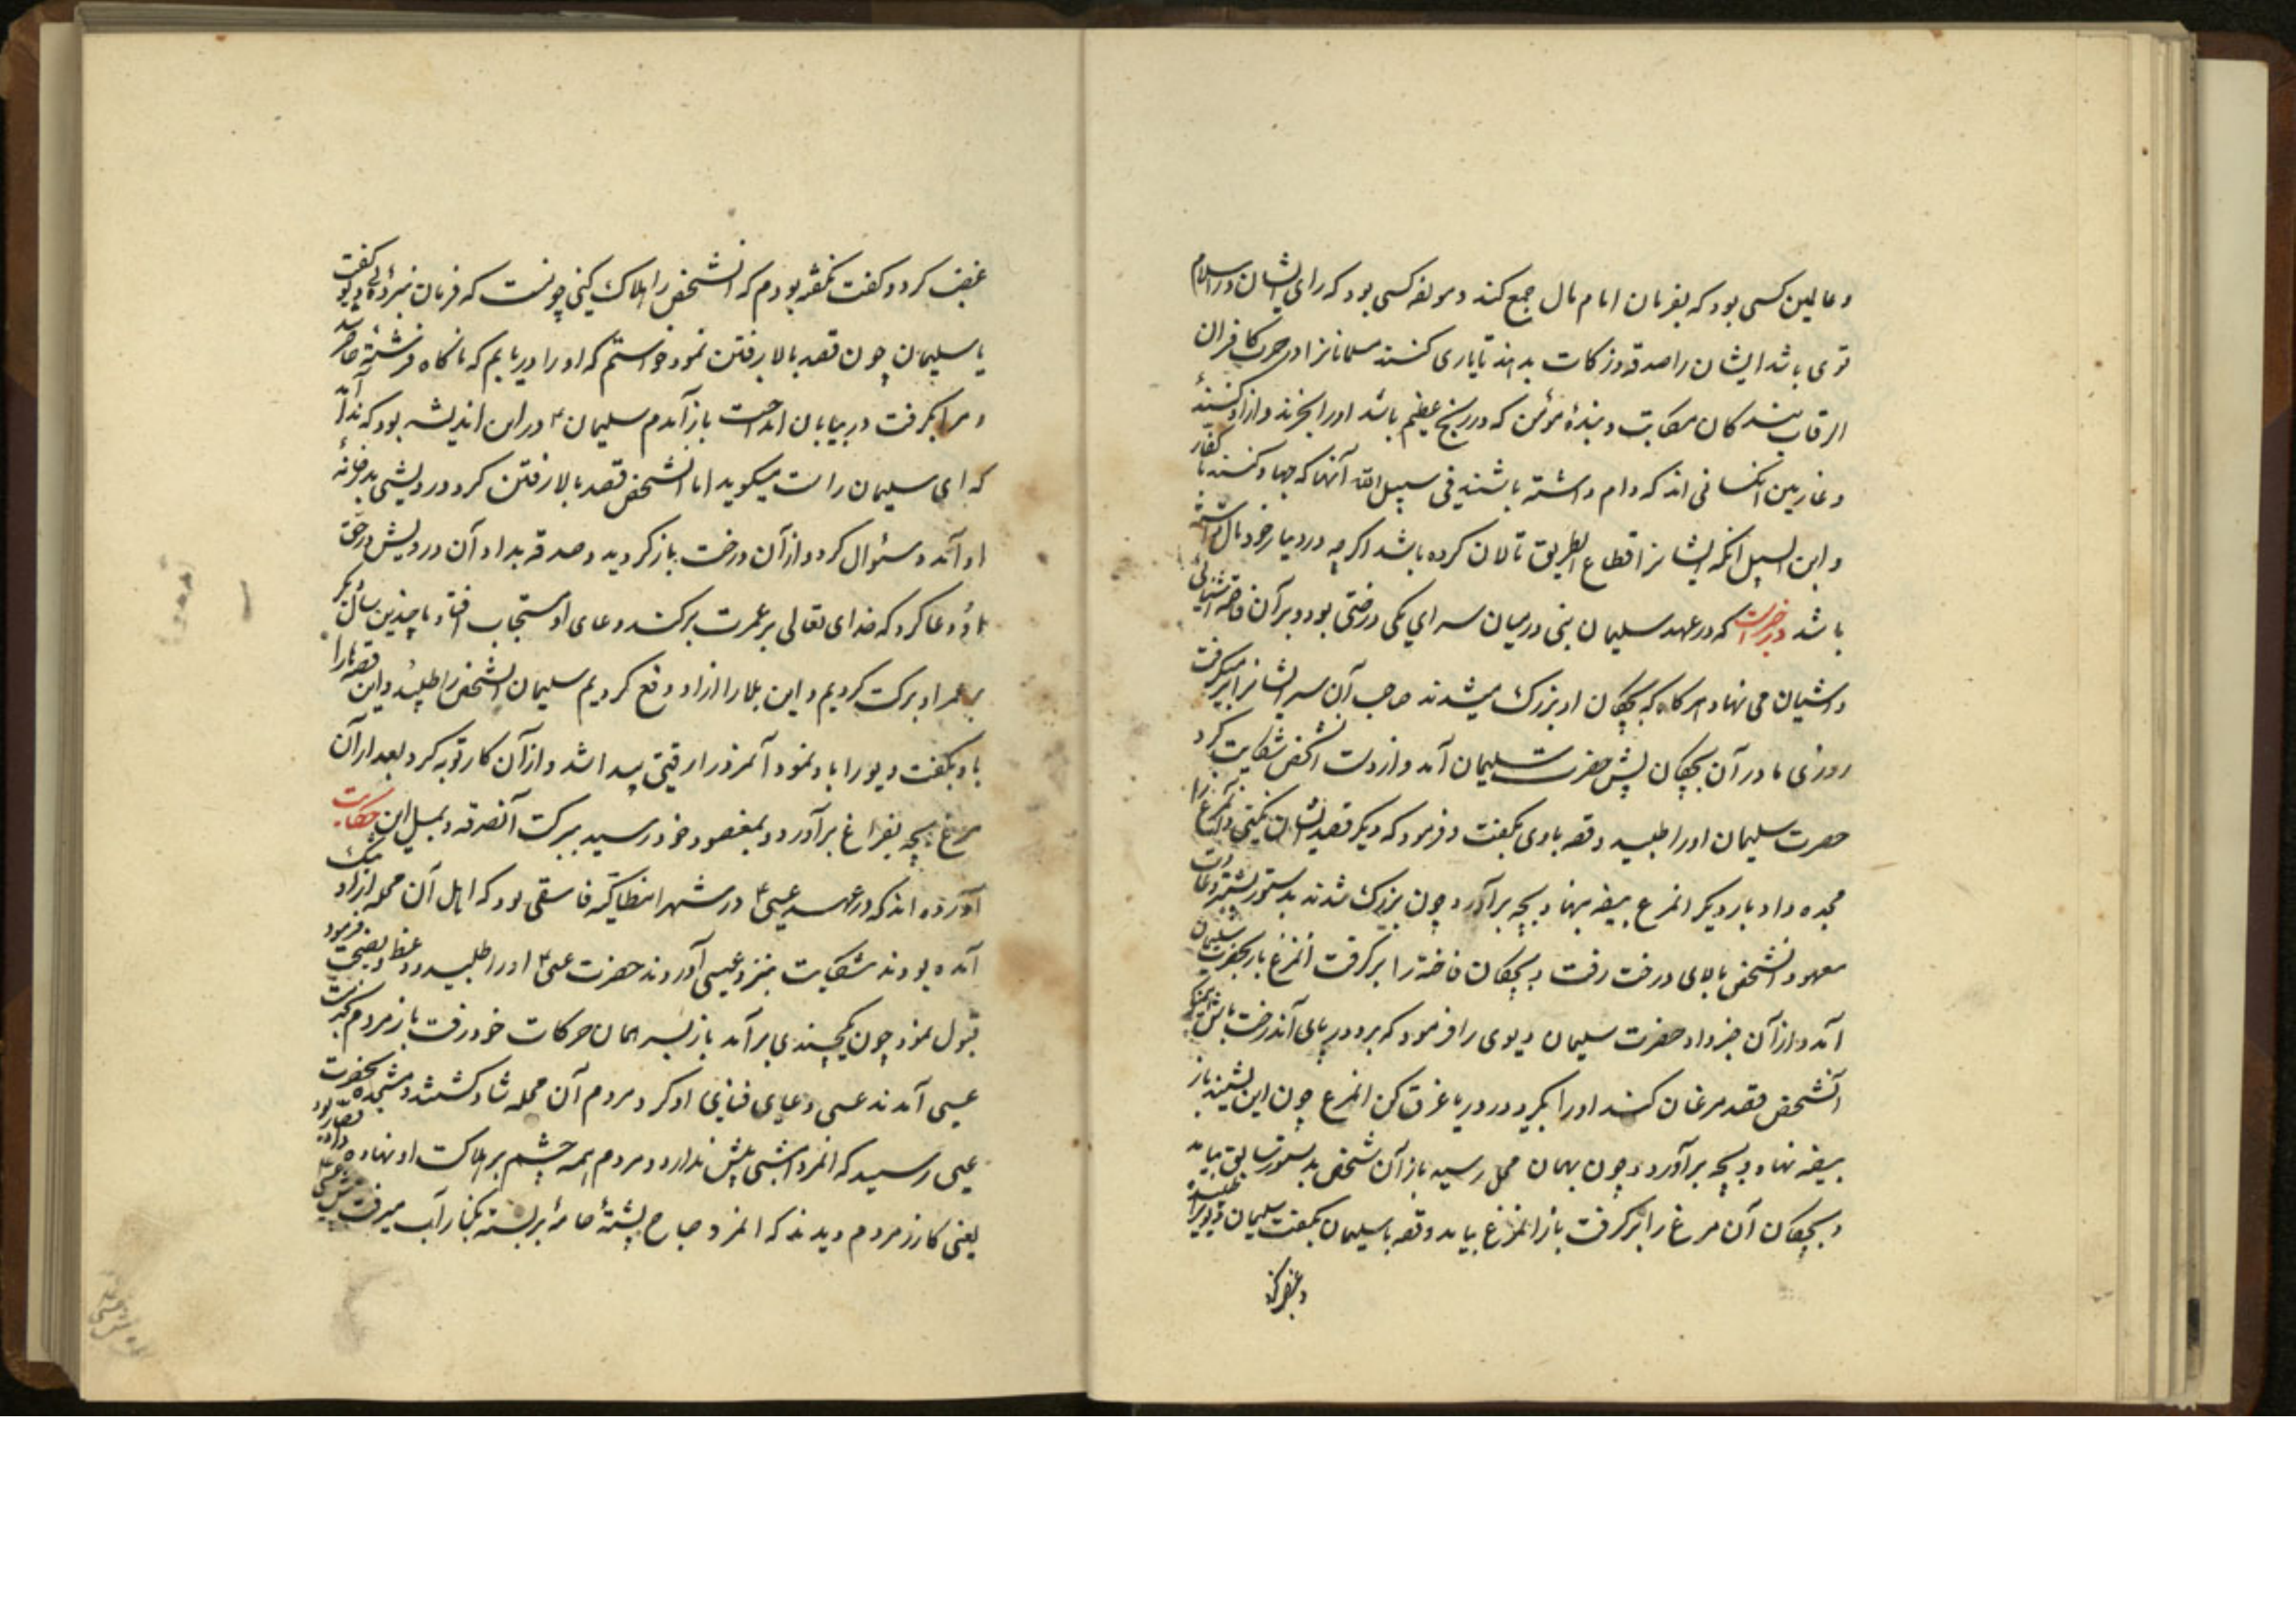 و عاملین کسی بود که بفرمان امام مال جمع کند و مولفه کسی بود که رای ایشان در اسلام
قوی باشد ایشان را صدقه و زکات بدهند تا یاری کنند مسلمانانرا در حرب کافران
الرقاب بندکان مکاتب و بندهٔ مؤمن که در رنج عظیم باشد او را بخرند و ازاد کنند
و غارمین انکسانی اند که وام داشته باشند فی سبیل الله آنها که جهاد کنند با کفار
و ابن السبیل انکه ایشانرا قطاع الطریق تالان کرده باشد اکرچه در دیار خود مال داشته
باشد در خبرست که در عهد سلیمان نبی در میان سرای یکی درختی بود و بر آن فاخته آشیانی
داشت بیضه می نهاد هر کاه که بچکان او بزرک میشدند صاحب آن سرا ایشانرا بر میکرفت
روزی مادر آن بچکان پیش حضرت سلیمان آمد و از دست انشخص شکایت کرد
حضرت سلیمان او را طلبید و قصه با وی بکفت و فرمود که دیکر قصد ایشان نکنی و آنمرغ را
مجده داد بار دیکر انمرغ بیضه بنهاد و بچه برآورد چون بزرک شدند بدستور بشتر و عادت
معهود انشخص بالای درخت رفت و بچکان فاخته را برکرفت انمرغ باز بحضرت سلیمان
آمد و از آن خبر داد حضرت سلیمان دیوی را فرمود که برو در پای آندرخت باش
آنشخص قصد مرغان کند او را بکیر و در دریا غرق کن انمرغ چون این بشنید باز
بیضه نهاد و بچه برآورد و چون بهمان محل رسید باز آن شخص بدستور سابق بیامد
و بچکان آن مرغ را برکرفت باز انمرغ بیامد و قصه با سلیمان بکفت سلیمان دیو را طلبید
و غضب کرد
غضب کرد و کفت نکفته بودم که انشخص را هلاک کنی چونست که فرمان نبردی دیو کفت
یا سلیمان چون قصد بالا رفتن نمود خواستم که او را دریابم که ناکاه فرشتهٔ حاضر شد
و مرا بکرفت در بیابان انداخت باز آمدم سلیمان در این اندیشه بود که ندا آمد
که ای سلیمان راست میکوید اما انشخص قصد بالا رفتن کرد درویشی بدر خانهٔ
او آمد و سئوال کرد و از آن درخت باز کردید و صدقه بداد آن درویش در حق
او دعا کرد که خدای تعالی بر عمرت برکت کند دعای او مستجاب افتاد با چندین سال دیکر
بر عمر او برکت کردیم و این بلا را از او دفع کردیم سلیمان انشخص را طلبید و این قصه ها را
با او بکفت و دیو را باو نمود آنمرد را رقتی پیدا شد و از آن کار توبه کرد بعد از آن
مرغ بچه بفراغ برآورد و بمقصود خود رسید ببرکت آنصدقه و بمثل این حکایت
آورده اند که در عهد عیسی در شهر انطاکیه فاسقی بود که اهل آن محله از او بتنک
آمده بودند شکایت بنزد عیسی آوردند حضرت عیسی او را طلبید و وعظ و نصیحت فرمود
قبول نمود چون یکچندی برآمد باز بسر همان حرکات خود رفت باز مردم
عیسی آمدند عیسی دعای فنای او کرد مردم آن محله شاد کشتند و بحضرت
عیسی رسید که انمرد امشبی بیش ندارد و مردم همه چشم بر هلاکت او نهاده
یعنی کازر مردم دیدند که انمرد صباح پشتهٔ جامهٔ بر بسته بکنار آب میرفت